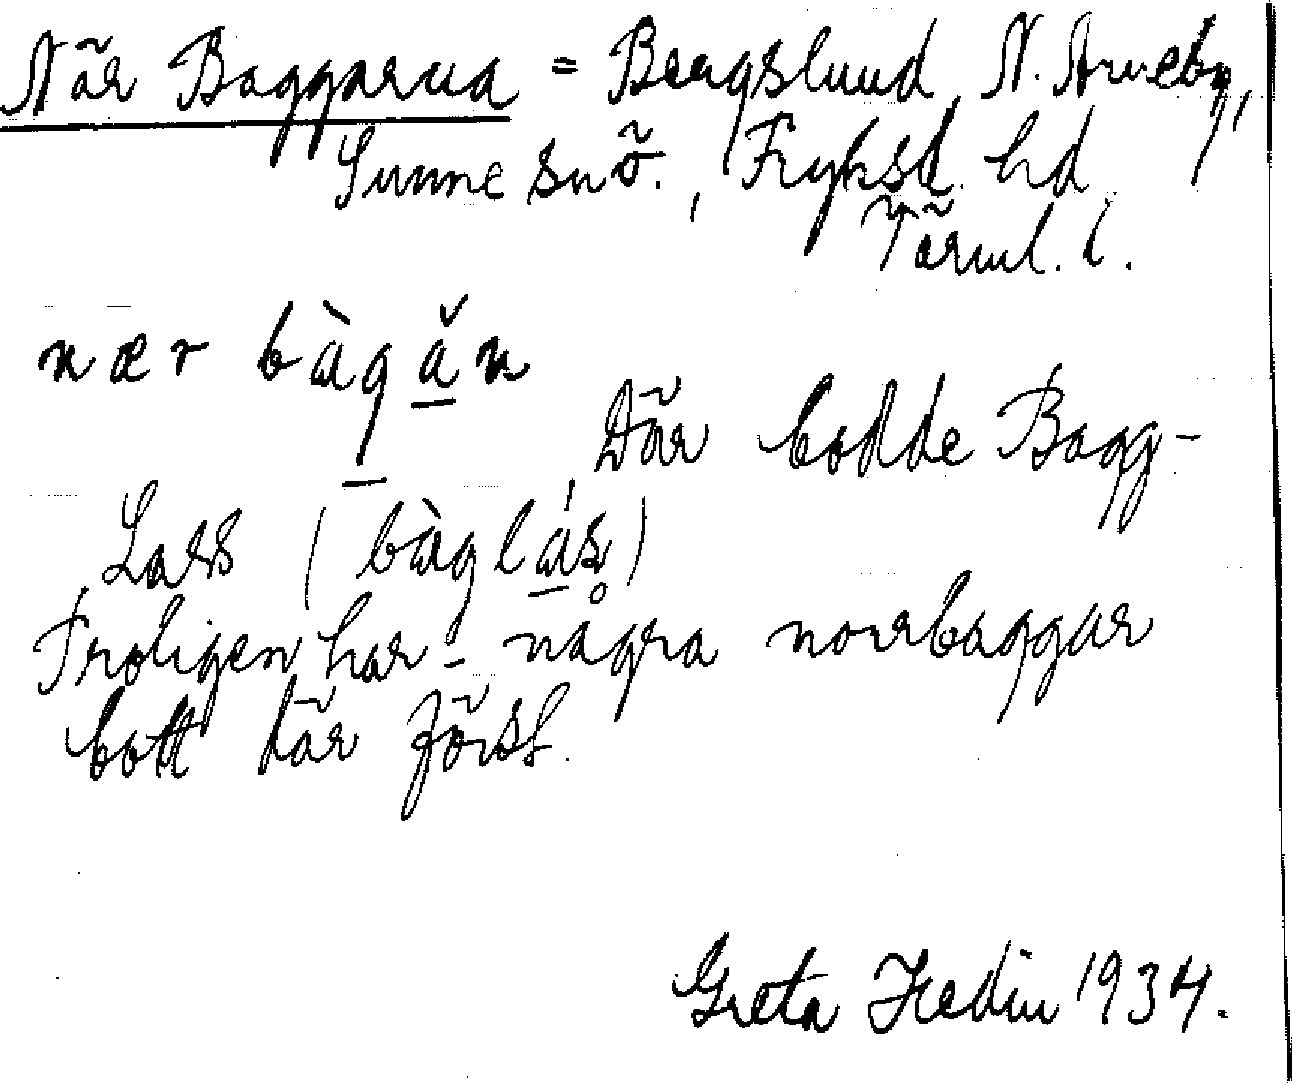 När Baggarna = Bergslund, N. Årneby,
Sunne sn ö., Fryksd. hd
Värml. l.
nær bàgăn
Där bodde Bagg-
Lars (bàglás̥)
Troligen har några norrbaggar
bott där först.
Greta Hedin 1934.